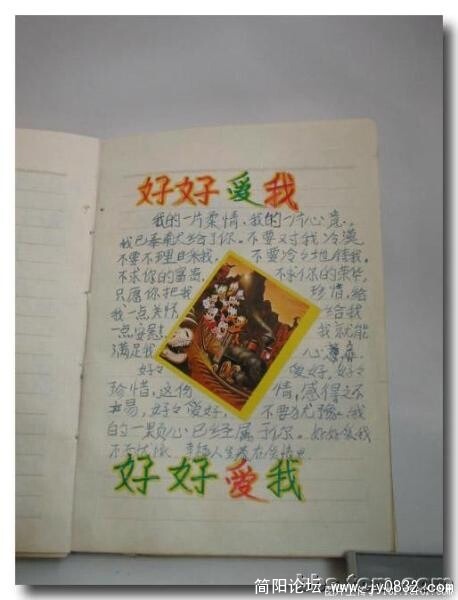 好好爱我
我的一片柔情,我的一片心意,
我已奉献给了你。不要对我冷漠
不要不理自来我. 不要冷冷地待我。
不求你的富贵 不求你的荣华,
只愿你把我 珍惜,给
我一点关怀 给我
一点安慰 我就能
满足我 心
好々 爱好,好々
珍惜,这份 情,感得之不
易,好々爱好, 不要犹豫,我
的一颗心已经属于你。好好爱我
幸福人生
好好爱我
简阳论坛 www.jy0832.com